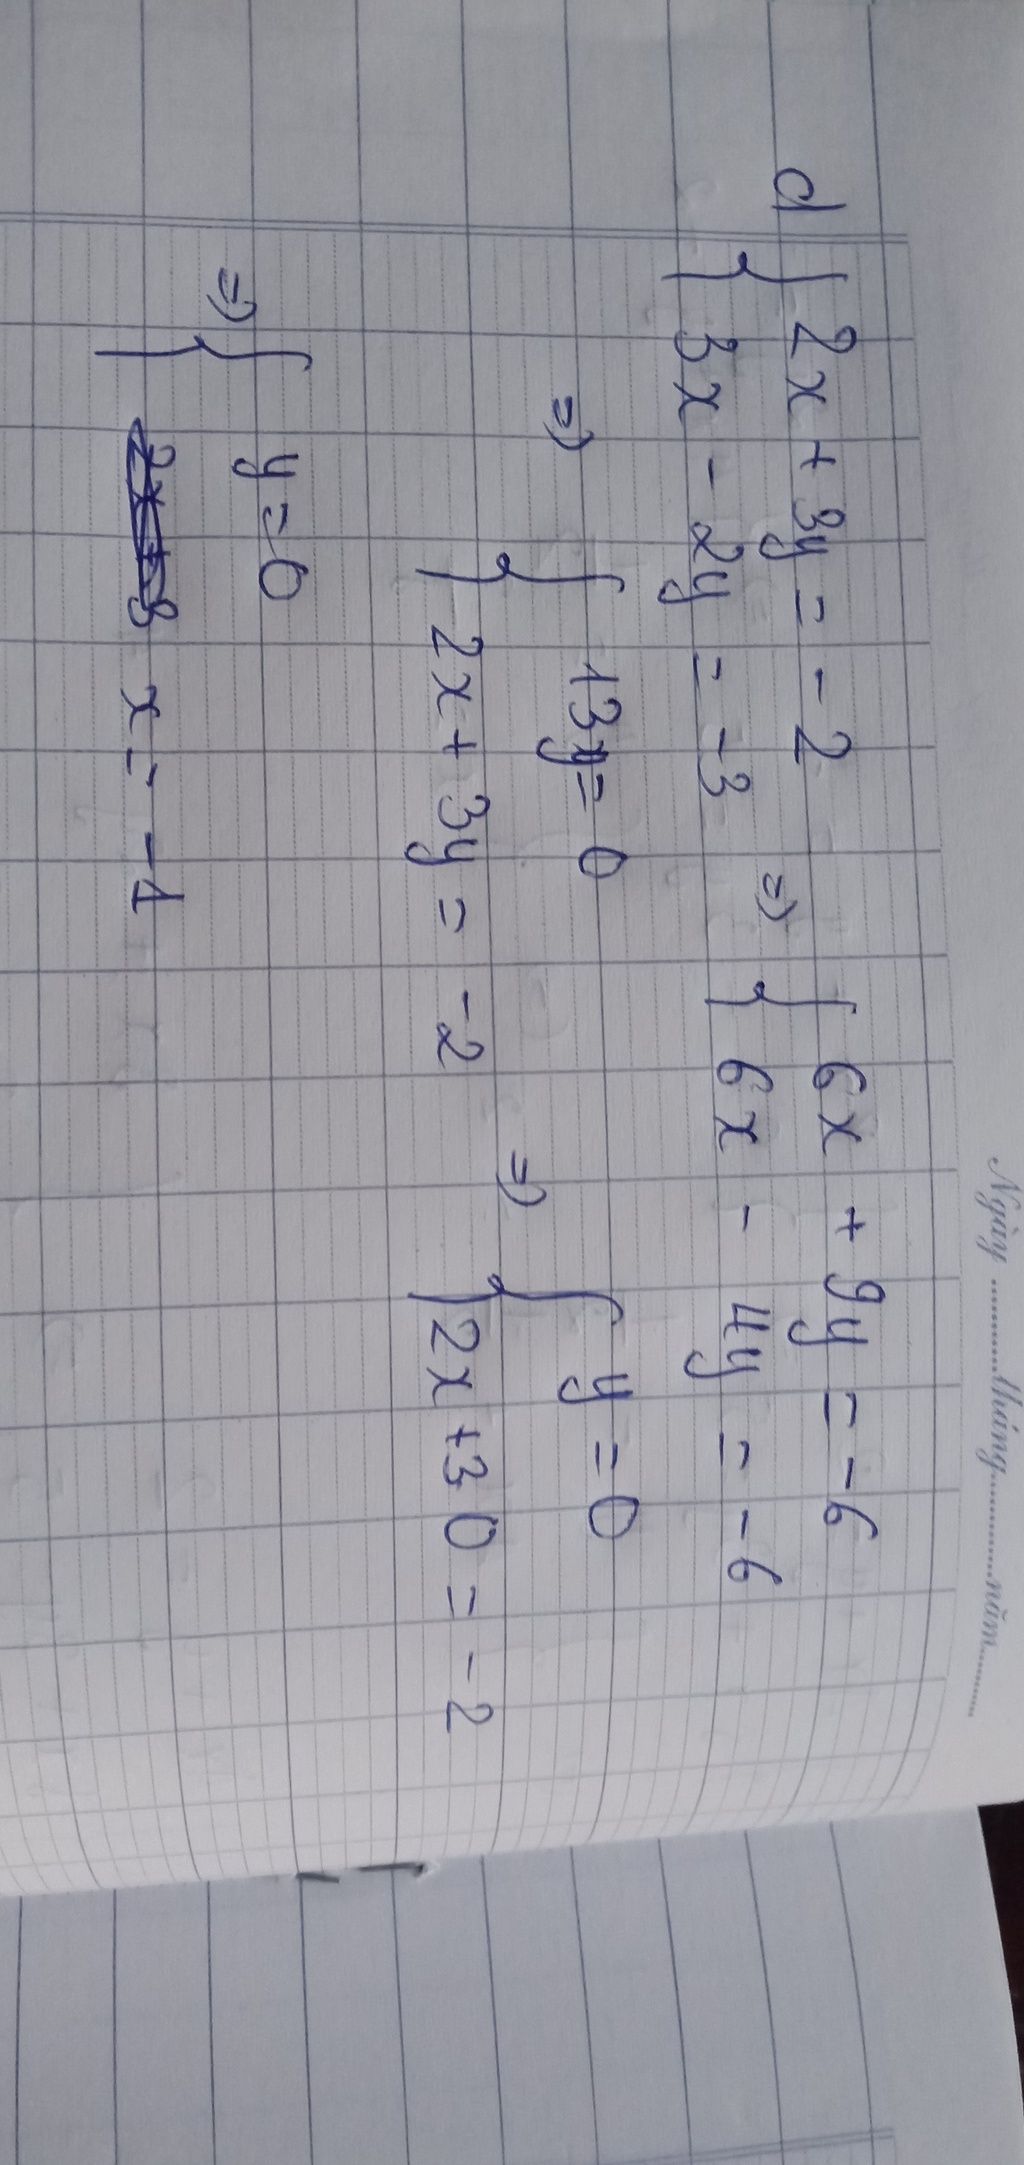 Ngày ............tháng............năm.........
d { 2x + 3y = - 2 => { 6x + 9y = - 6
3x - 2y = - 3 6x - 4y = - 6
=> { 13y = 0 => { y = 0
2x + 3y = - 2 2x + 3 0 = - 2
=> { y = 0
x = - 1